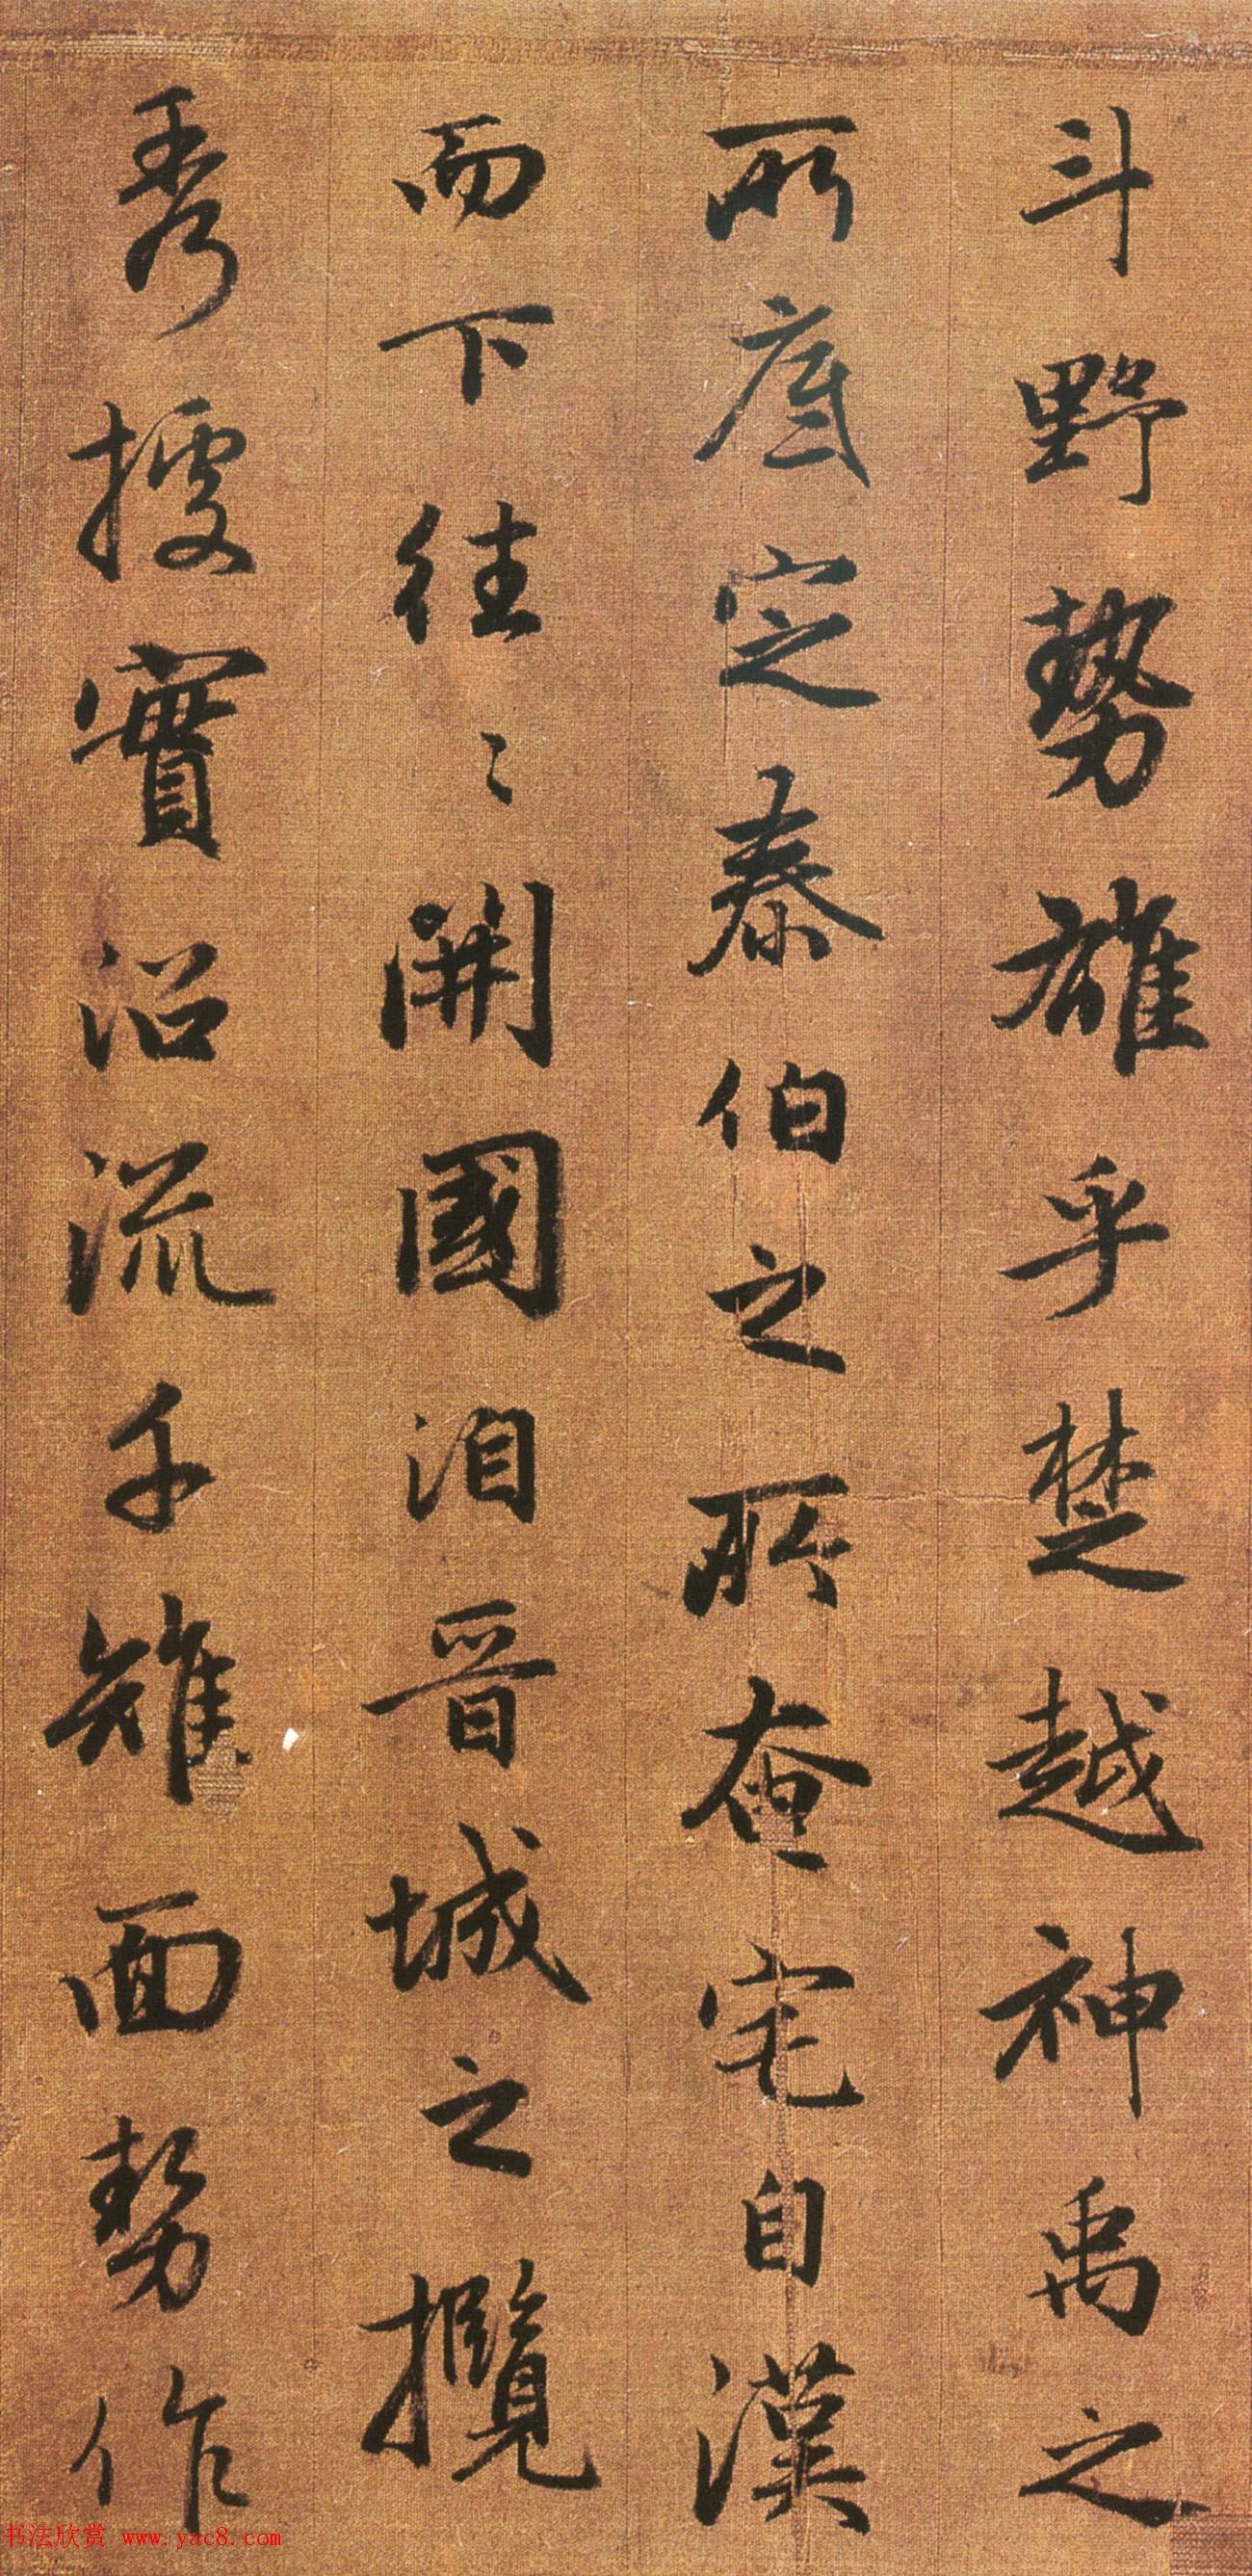 斗野勢雄乎楚越神禹之
所底定泰伯之所奄宅自漢
而下往〻開國洎晉城之攬
秀據實沿流千雉面勢作
书法欣赏 www.yac8.com